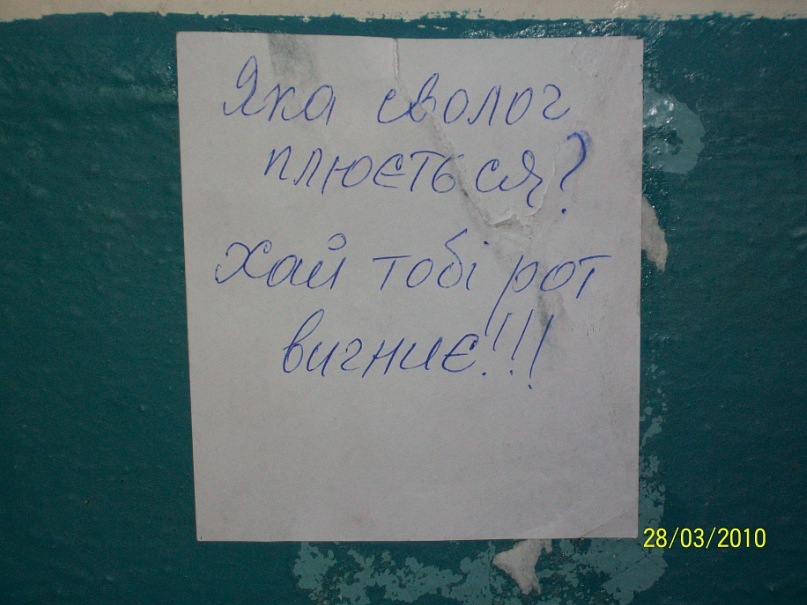 Яка сволог
плюється?
Хай тобі рот
вигниє!!!
28/03/2010